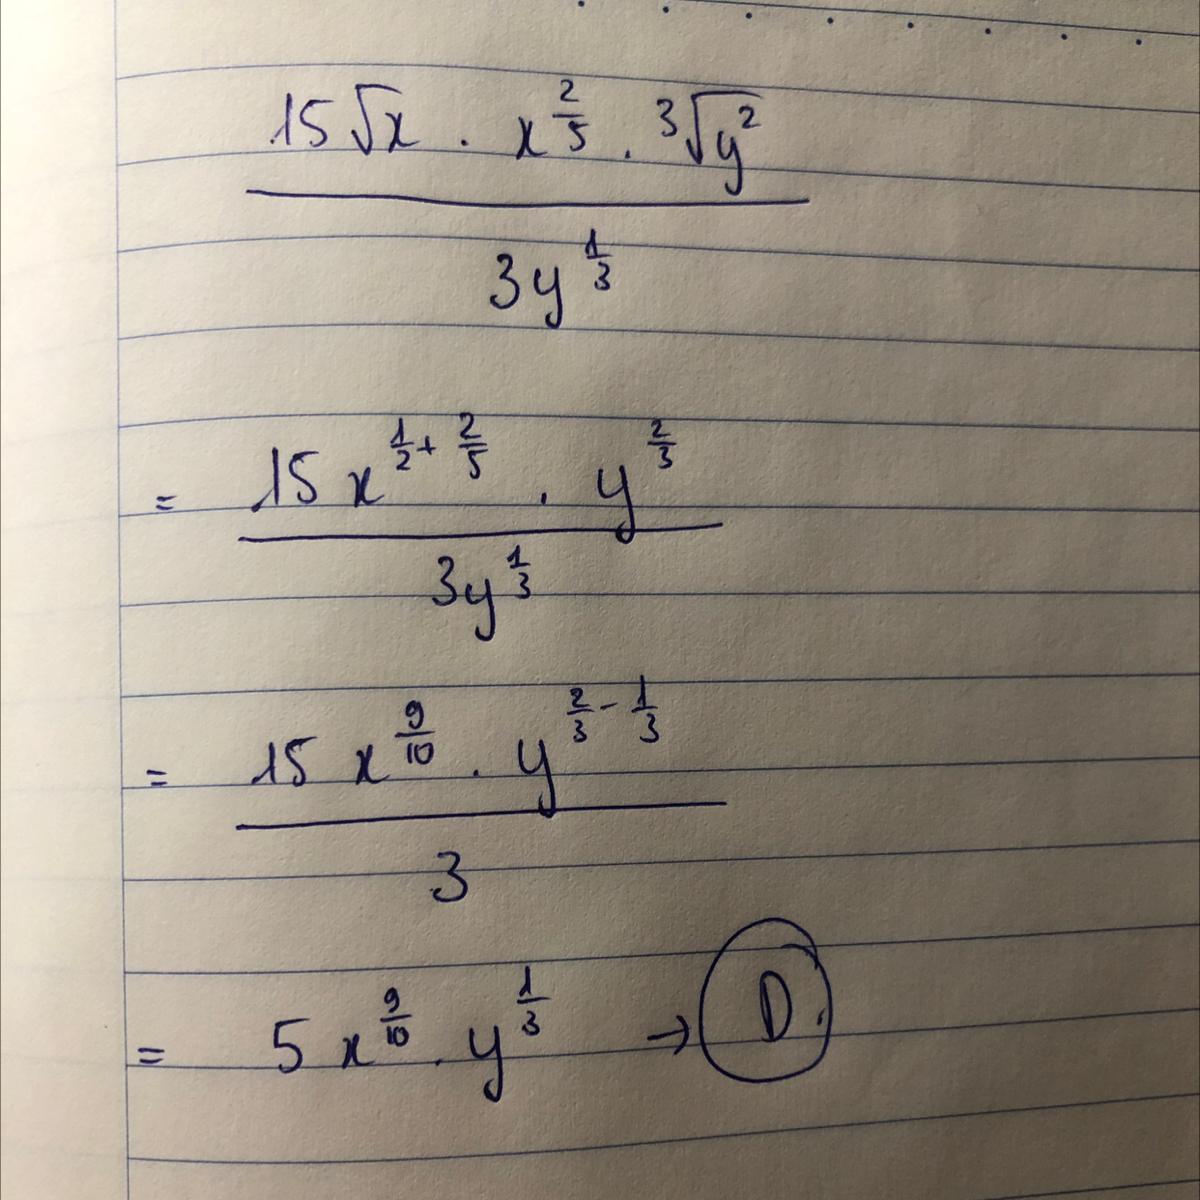 15√x . x^(2/5) . ³√y²
3y^(1/3)
= 15 x^(1/2 + 2/5) . y^(2/3)
3y^(1/3)
= 15 x^(9/10) . y^(2/3 - 1/3)
3
= 5 x^(9/10) . y^(1/3) → D.